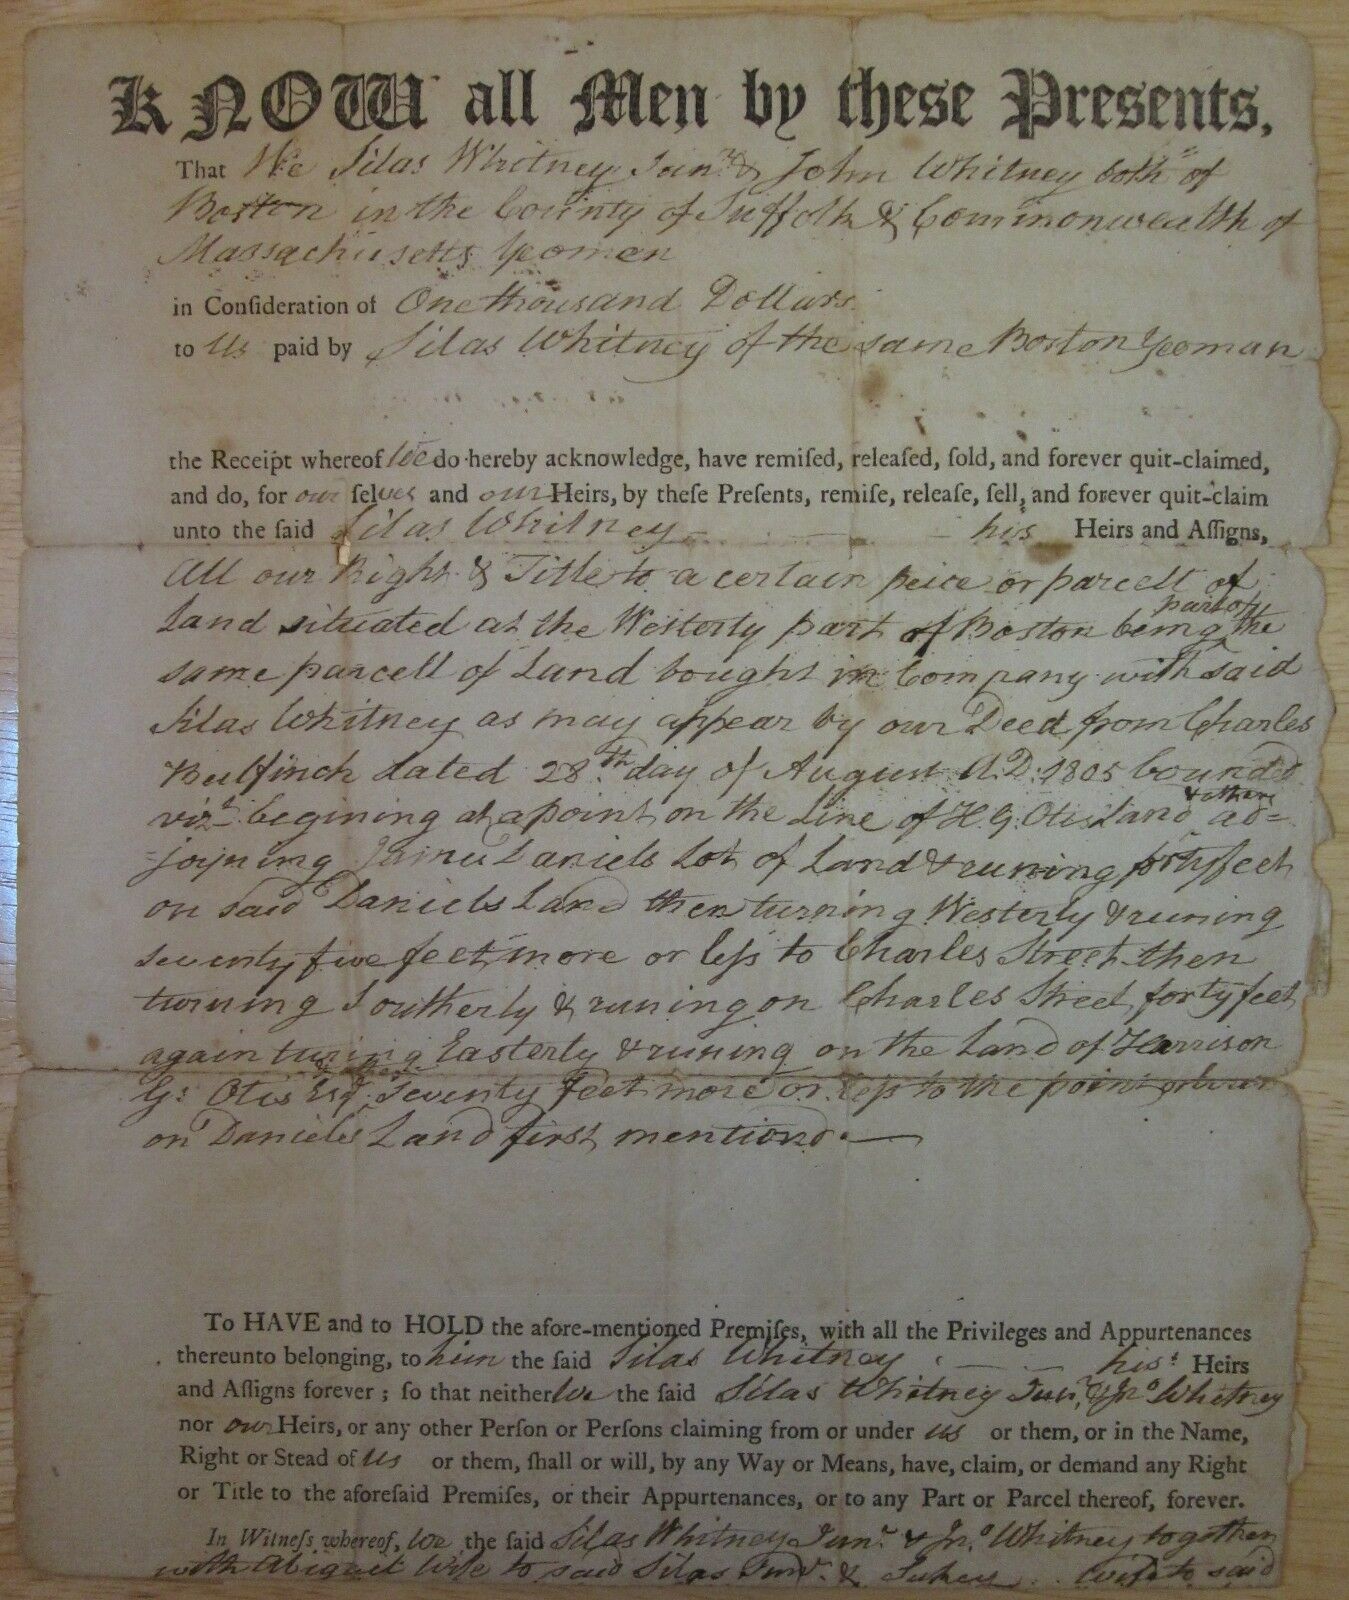 KNOW all Men by these Presents,
That We Silas Whitney Junr. & John Whitney both of
Boston in the County of Suffolk & Commonwealth of
Massachusetts Yeomen
in Conſideration of One thousand Dollars
to Us paid by Silas Whitney of the same Boston Yeoman
the Receipt whereof We do hereby acknowledge, have remiſed, releaſed, ſold, and forever quit-claimed,
and do, for our ſelves and our Heirs, by theſe Preſents, remiſe, releaſe, ſell, and forever quit-claim
unto the ſaid Silas Whitney his Heirs and Aſſigns,
All our Right & Title to a certain peice or parcell of
Land situated at the Westerly part of Boston being part of the
same parcell of Land bought in Company with said
Silas Whitney as may appear by our Deed from Charles
Bulfinch dated 28th day of August A.D. 1805 bounded
vizt. begining at a point on the Line of H. G. Otis & others Land ad=
=joyning Daniels Lot of Land & runing forty feet
on said Daniels Land then turning Westerly & runing
seventy five feet more or leſs to Charles Street then
turning Southerly & runing on Charles Street forty feet
again turing Easterly & runing on the Land of Harrison
G: Otis Esqr. & others seventy feet more or leſs to the point
on Daniels Land first mentiond.
To HAVE and to HOLD the afore-mentioned Premiſes, with all the Privileges and Appurtenances
thereunto belonging, to him the ſaid Silas Whitney his Heirs
and Aſſigns forever; ſo that neither We the ſaid Silas Whitney Junr, & Jno Whitney
nor our Heirs, or any other Perſon or Perſons claiming from or under us or them, or in the Name,
Right or Stead of us or them, ſhall or will, by any Way or Means, have, claim, or demand any Right
or Title to the aforeſaid Premiſes, or their Appurtenances, or to any Part or Parcel thereof, forever.
In Witneſs whereof, We the ſaid Silas Whitney Junr. & Jno. Whitney together
with Abigael Wife to said Silas Junr. & Sukey wife to said